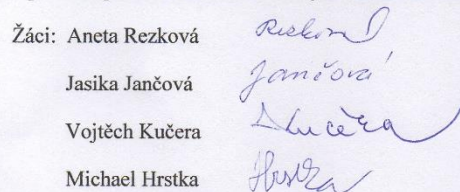 Žáci: Aneta Rezková Rezková
Jasika Jančová Jančová
Vojtěch Kučera Kučera
Michael Hrstka Hrstka